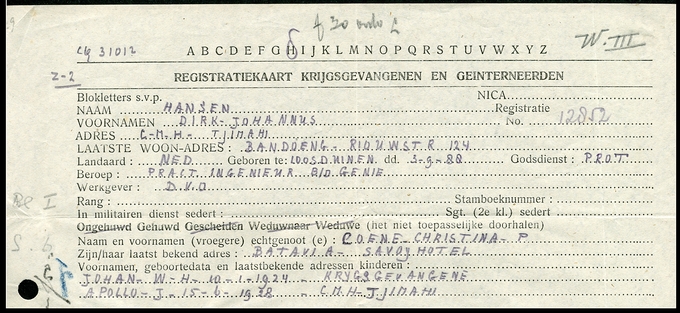 Cg 31012
A B C D E F G H I J K L M N O P Q R S T U V W X Y Z
W. III
Z-2
REGISTRATIEKAART KRIJGSGEVANGENEN EN GEINTERNEERDEN
Blokletters s.v.p. NICA
NAAM HANSEN Registratie
VOORNAMEN DIRK-JOHANNUS No. 12852
ADRES C-M-H- TJIMAHI
LAATSTE WOON-ADRES: BANDOENG- RIOUWSTR 124
Landaard: NED Geboren te: LOOSDUINEN dd. 3-9-88 Godsdienst: PROT
Beroep: PRACT INGENIEUR BIJ GENIE
Werkgever: D.V.O
Rang: Stamboeknummer:
In militairen dienst sedert: Sgt. (2e kl.) sedert:
Ongehuwd Gehuwd Gescheiden Weduwnaar Weduwe (het niet toepasselijke doorhalen)
Naam en voornamen (vroegere) echtgenoot (e): COENE-CHRISTINA-P
Zijn/haar laatst bekend adres: BATAVIA- SAVOY HOTEL
Voornamen, geboortedata en laatstbekende adressen kinderen:
JOHAN-W-H- 10-1-1924 - KRYGSGEVANGENE
APOLLO-J-15-6-1928 - C.M.H-TJIMAHI